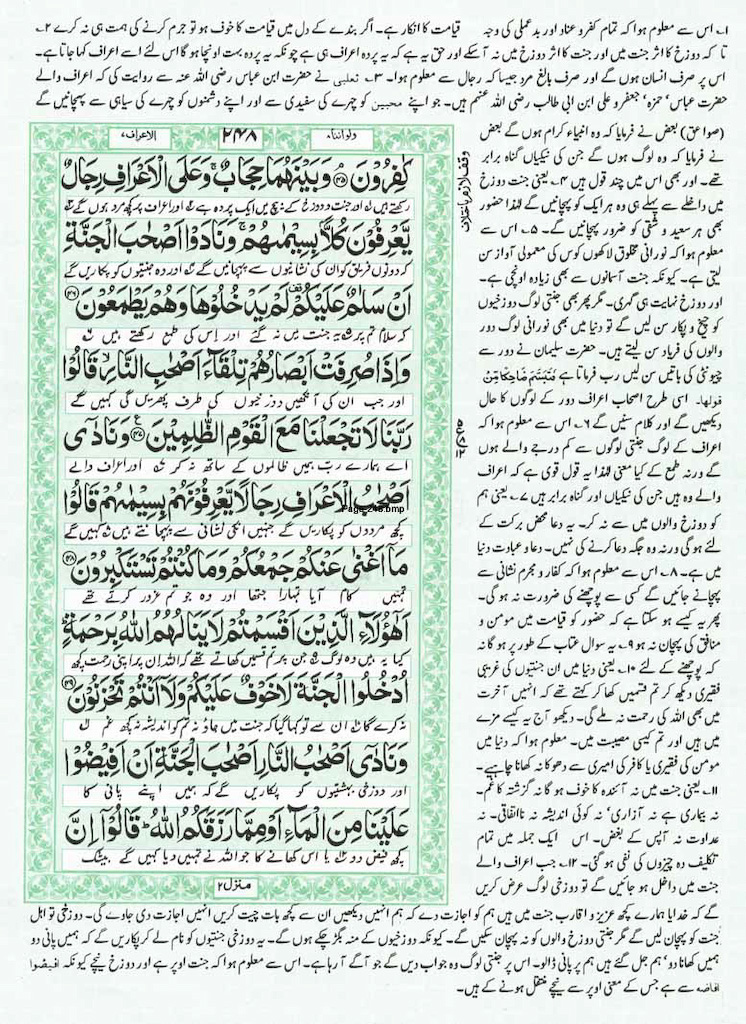 ۱؎ اس سے معلوم ہوا کہ تمام کفر و عناد اور بدعملی کی وجہ قیامت کا انکار ہے۔ اگر بندے کے دل میں قیامت کا خوف ہو تو جرم کرنے کی ہمت ہی نہ کرے ۲؎
تا کہ دوزخ کا اثر جنت میں اور جنت کا اثر دوزخ میں نہ آسکے اور حق یہ ہے کہ یہ پردہ اعراف ہی ہے چونکہ یہ پردہ بہت اونچا ہو گا اس لئے اسے اعراف کہا جاتا ہے۔
اس پر صرف انسان ہوں گے اور صرف بالغ مرد جیسا کہ رجال سے معلوم ہوا۔ ۳؎ ثعلبی نے حضرت ابن عباس رضی اللہ عنہ سے روایت کی کہ اعراف والے
حضرت عباس' حمزہ' جعفر و علی ابن ابی طالب رضی اللہ عنہم ہیں۔ جو اپنے محبین کو چہرے کی سفیدی سے اور اپنے دشمنوں کو چہرے کی سیاہی سے پہچانیں گے
(صواعق) بعض نے فرمایا کہ وہ انبیاء کرام ہوں گے بعض
نے فرمایا کہ یہ وہ لوگ ہوں گے جن کی نیکیاں گناہ برابر
تھے۔ اور بھی اس میں چند قول ہیں ۴؎ یعنی جنت دوزخ
میں داخلے سے پہلے ہی وہ ہر ایک کو پہچانیں گے لہٰذا حضور
بھی ہر سعید و شقی کو ضرور پہچانیں گے۔ ۵؎ اس سے
معلوم ہوا کہ نورانی مخلوق لاکھوں کوس کی معمولی آواز سن
لیتی ہے۔ کیونکہ جنت آسمانوں سے بھی زیادہ اونچی ہے۔
اور دوزخ نہایت ہی گہری۔ مگر پھر بھی جنتی لوگ دوزخیوں
کو چیخ و پکار سن لیں گے تو دنیا میں بھی نورانی لوگ دور
والوں کی فریاد سن لیتے ہیں۔ حضرت سلیمان نے دور سے
چیونٹی کی باتیں سن لیں رب فرماتا ہے فَتَبَسَّمَ ضَاحِكًا مِّنْ
قولها۔ اسی طرح اصحاب اعراف دور کے لوگوں کا حال
دیکھیں گے اور کلام سنیں گے ۶؎ اس سے معلوم ہوا کہ
اعراف کے لوگ جنتی لوگوں سے کم درجے والے ہوں
گے ورنہ طمع کے کیا معنی لہٰذا یہ قول قوی ہے کہ اعراف
والے وہ ہیں جن کی نیکیاں اور گناہ برابر ہیں ۷؎ یعنی ہم
کو دوزخ والوں میں سے نہ کر۔ یہ دعا محض برکت کے
لئے ہو گی ورنہ وہ جگہ دعا کرنے کی نہیں۔ دعا و عبادت دنیا
میں ہے۔ ۸؎ اس سے معلوم ہوا کہ کفار و مجرم نشانی سے
پہچانے جائیں گے کسی سے پوچھنے کی ضرورت نہ ہو گی۔
پھر یہ کیسے ہو سکتا ہے کہ حضور کو قیامت میں مومن و
منافق کی پہچان نہ ہو ۹؎ یہ سوال عتاب کے طور پر ہو گا نہ
کہ پوچھنے کے لئے ۱۰؎ یعنی دنیا میں ان جنتیوں کی غریبی
فقیری دیکھ کر تم قسمیں کھا کر کہتے تھے کہ انہیں آخرت
میں بھی اللہ کی رحمت نہ ملے گی۔ دیکھو آج یہ کیسے مزے
میں ہیں اور تم کیسی مصیبت میں۔ معلوم ہوا کہ دنیا میں
مومن کی فقیری یا کافر کی امیری سے دھوکا نہ کھانا چاہیے۔
۱۱؎ یعنی جنت میں نہ آئندہ کا خوف ہو گا نہ گزشتہ کا غم۔
نہ بیماری ہے نہ آزاری' نہ کوئی اندیشہ نہ نااتفاقی۔ نہ
عداوت نہ آپس کے بغض۔ اس ایک جملہ میں تمام
تکلیف دہ چیزوں کی نفی ہو گئی۔ ۱۲؎ جب اعراف والے
جنت میں داخل ہو جائیں گے تو دوزخی لوگ عرض کریں
ولواننا۸ ۲۴۸ الاعراف۷
كٰفِرُوْنَ ﴿۴۵﴾ وَبَيْنَهُمَا حِجَابٌ ۚ وَعَلَى الْاَعْرَافِ رِجَالٌ
رکھتے ہیں ۱؎ اور جنت و دوزخ کے بیچ میں ایک پردہ ہے ۲؎ اور اعراف پر کچھ مرد ہوں گے ۳؎
يَّعْرِفُوْنَ كُلًّاۢ بِسِيْمٰىهُمْ ۚ وَنَادَوْا اَصْحٰبَ الْجَنَّةِ
کہ دونوں فریق کو ان کی نشانیوں سے پہچانیں گے ۴؎ اور وہ جنتیوں کو پکاریں گے
اَنْ سَلٰمٌ عَلَيْكُمْ ۟ لَمْ يَدْخُلُوْهَا وَهُمْ يَطْمَعُوْنَ ﴿۴۶﴾
کہ سلام تم پر ۵؎ یہ جنت میں نہ گئے اور اس کی طمع رکھتے ہیں ۶؎
وَاِذَا صُرِفَتْ اَبْصَارُهُمْ تِلْقَآءَ اَصْحٰبِ النَّارِ ۙ قَالُوْا
اور جب ان کی آنکھیں دوزخیوں کی طرف پھریں گی کہیں گے
رَبَّنَا لَا تَجْعَلْنَا مَعَ الْقَوْمِ الظّٰلِمِيْنَ ﴿۴۷﴾ وَنَادٰۤى
اے ہمارے رب ہمیں ظالموں کے ساتھ نہ کر ۷؎ اور اعراف والے
اَصْحٰبُ الْاَعْرَافِ رِجَالًا يَّعْرِفُوْنَهُمْ بِسِيْمٰىهُمْ قَالُوْا
کچھ مردوں کو پکاریں گے جنہیں انکی نشانی سے پہچانتے ہیں ۸؎ کہیں گے
Page 248.bmp
مَاۤ اَغْنٰى عَنْكُمْ جَمْعُكُمْ وَمَا كُنْتُمْ تَسْتَكْبِرُوْنَ ﴿۴۸﴾
تمہیں کیا کام آیا تمہارا جتھا اور وہ جو تم غرور کرتے تھے
اَهٰۤؤُلَآءِ الَّذِيْنَ اَقْسَمْتُمْ لَا يَنَالُهُمُ اللّٰهُ بِرَحْمَةٍ ؕ
کیا یہ ہیں وہ لوگ ۹؎ جن پر تم قسمیں کھاتے تھے کہ اللہ ان پر اپنی رحمت کچھ
اُدْخُلُوا الْجَنَّةَ لَا خَوْفٌ عَلَيْكُمْ وَلَاۤ اَنْتُمْ تَحْزَنُوْنَ ﴿۴۹﴾
نہ کرے گا ۱۰؎ ان سے تو کہا گیا کہ جنت میں جاؤ نہ تم کو اندیشہ نہ کچھ غم ۱۱؎
وَنَادٰۤى اَصْحٰبُ النَّارِ اَصْحٰبَ الْجَنَّةِ اَنْ اَفِيْضُوْا
اور دوزخی بہشتیوں کو پکاریں گے کہ ہمیں اپنے پانی کا
عَلَيْنَا مِنَ الْمَآءِ اَوْ مِمَّا رَزَقَكُمُ اللّٰهُ ؕ قَالُوْۤا اِنَّ
کچھ فیض دو ۱۲؎ یا اس کھانے کا جو اللہ نے تمہیں دیا کہیں گے بیشک
منزل۲
گے کہ خدایا ہمارے کچھ عزیز و اقارب جنت میں ہیں ہم کو اجازت دے کہ ہم انہیں دیکھیں ان سے کچھ بات چیت کریں انہیں اجازت دی جاوے گی۔ دوزخی تو اہل
جنت کو پہچان لیں گے مگر جنتی دوزخ والوں کو نہ پہچان سکیں گے۔ کیونکہ دوزخیوں کے منہ بگڑ چکے ہوں گے۔ یہ دوزخی جنتیوں کو نام لے کر پکاریں گے کہ ہمیں پانی دو
ہمیں کھانا دو' ہم جل گئے ہیں ہم پر پانی ڈالو۔ اس پر جنتی لوگ وہ جواب دیں گے جو آگے آ رہا ہے۔ اس سے معلوم ہوا کہ جنت اوپر ہے اور دوزخ نیچے کیونکہ افیضوا
افاضہ سے ہے جس کے معنی اوپر سے نیچے منتقل ہونے کے ہیں۔